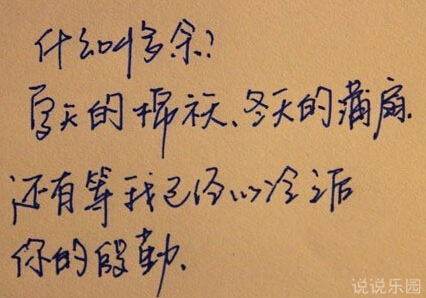 什么叫多余？
夏天的棉袄、冬天的蒲扇.
还有等我已经心冷之后
你的殷勤.
说说乐园